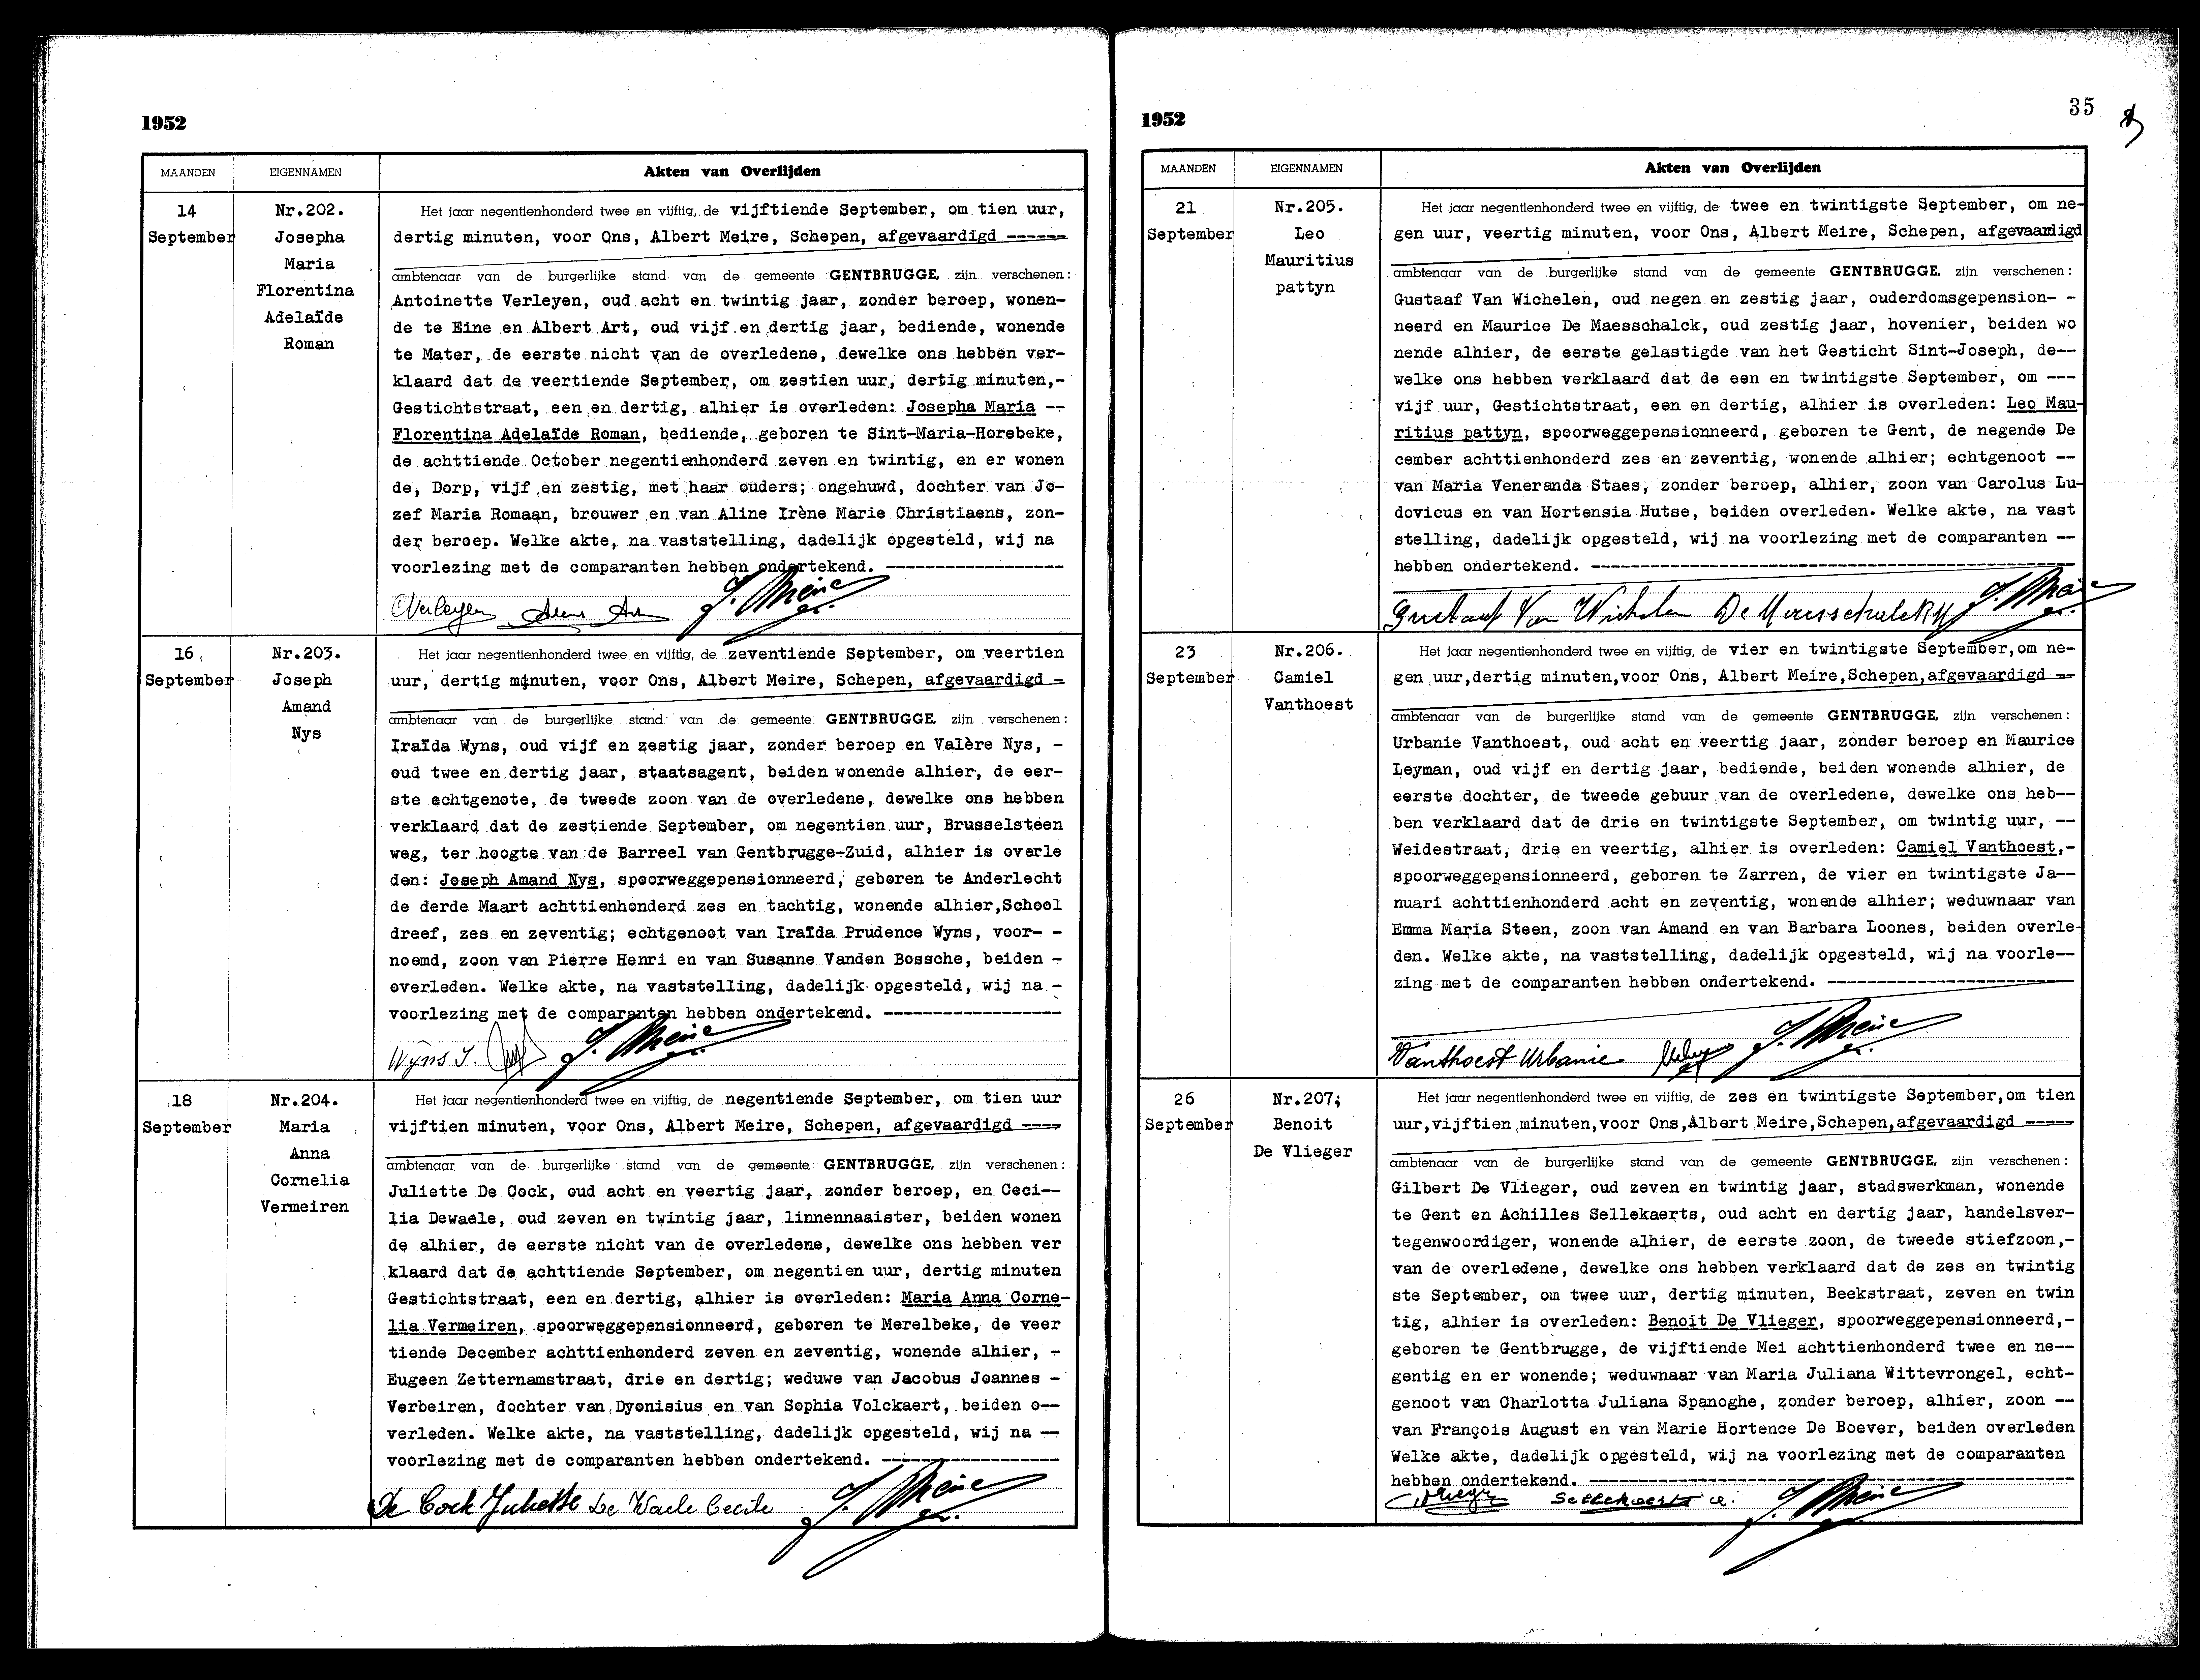 1952
MAANDEN EIGENNAMEN Akten van Overlijden
14
September
Nr.202.
Josepha
Maria
Florentina
Adelaïde
Roman
Het jaar negentienhonderd twee en vijftig, de vijftiende September, om tien uur,
dertig minuten, voor Ons, Albert Meire, Schepen, afgevaardigd ------
ambtenaar van de burgerlijke stand van de gemeente GENTBRUGGE, zijn verschenen:
Antoinette Verleyen, oud acht en twintig jaar, zonder beroep, wonen-
de te Eine en Albert Art, oud vijf en dertig jaar, bediende, wonende
te Mater, de eerste nicht van de overledene, dewelke ons hebben ver-
klaard dat de veertiende September, om zestien uur, dertig minuten,-
Gestichtstraat, een en dertig, alhier is overleden: Josepha Maria --
Florentina Adelaïde Roman, bediende, geboren te Sint-Maria-Horebeke,
de achttiende October negentienhonderd zeven en twintig, en er wonen
de, Dorp, vijf en zestig, met haar ouders; ongehuwd, dochter van Jo-
zef Maria Romaan, brouwer en van Aline Irène Marie Christiaens, zon-
der beroep. Welke akte, na vaststelling, dadelijk opgesteld, wij na
voorlezing met de comparanten hebben ondertekend. ------------------
Verleyen Art A. Meire
16
September
Nr.203.
Joseph
Amand
Nys
Het jaar negentienhonderd twee en vijftig, de zeventiende September, om veertien
uur, dertig minuten, voor Ons, Albert Meire, Schepen, afgevaardigd -
ambtenaar van de burgerlijke stand van de gemeente GENTBRUGGE, zijn verschenen:
Iraïda Wyns, oud vijf en zestig jaar, zonder beroep en Valère Nys, -
oud twee en dertig jaar, staatsagent, beiden wonende alhier, de eer-
ste echtgenote, de tweede zoon van de overledene, dewelke ons hebben
verklaard dat de zestiende September, om negentien uur, Brusselsteen
weg, ter hoogte van de Barreel van Gentbrugge-Zuid, alhier is overle
den: Joseph Amand Nys, spoorweggepensionneerd, geboren te Anderlecht
de derde Maart achttienhonderd zes en tachtig, wonende alhier,School
dreef, zes en zeventig; echtgenoot van Iraïda Prudence Wyns, voor- -
noemd, zoon van Pierre Henri en van Susanne Vanden Bossche, beiden -
overleden. Welke akte, na vaststelling, dadelijk opgesteld, wij na -
voorlezing met de comparanten hebben ondertekend. ------------------
Wyns I. A. Meire
18
September
Nr.204.
Maria
Anna
Cornelia
Vermeiren
Het jaar negentienhonderd twee en vijftig, de negentiende September, om tien uur
vijftien minuten, voor Ons, Albert Meire, Schepen, afgevaardigd ----
ambtenaar van de burgerlijke stand van de gemeente GENTBRUGGE, zijn verschenen:
Juliette De Cock, oud acht en veertig jaar, zonder beroep, en Ceci--
lia Dewaele, oud zeven en twintig jaar, linnennaaister, beiden wonen
de alhier, de eerste nicht van de overledene, dewelke ons hebben ver
klaard dat de achttiende September, om negentien uur, dertig minuten
Gestichtstraat, een en dertig, alhier is overleden: Maria Anna Corne-
lia Vermeiren, spoorweggepensionneerd, geboren te Merelbeke, de veer
tiende December achttienhonderd zeven en zeventig, wonende alhier, -
Eugeen Zetternamstraat, drie en dertig; weduwe van Jacobus Joannes -
Verbeiren, dochter van Dyonisius en van Sophia Volckaert, beiden o--
verleden. Welke akte, na vaststelling, dadelijk opgesteld, wij na --
voorlezing met de comparanten hebben ondertekend. ------------------
De Cock Juliette De Waele Cecile A. Meire
1952
35
MAANDEN EIGENNAMEN Akten van Overlijden
21
September
Nr.205.
Leo
Mauritius
pattyn
Het jaar negentienhonderd twee en vijftig, de twee en twintigste September, om ne-
gen uur, veertig minuten, voor Ons, Albert Meire, Schepen, afgevaardigd
ambtenaar van de burgerlijke stand van de gemeente GENTBRUGGE, zijn verschenen:
Gustaaf Van Wichelen, oud negen en zestig jaar, ouderdomsgepension- -
neerd en Maurice De Maesschalck, oud zestig jaar, hovenier, beiden wo
nende alhier, de eerste gelastigde van het Gesticht Sint-Joseph, de--
welke ons hebben verklaard dat de een en twintigste September, om ---
vijf uur, Gestichtstraat, een en dertig, alhier is overleden: Leo Mau-
ritius pattyn, spoorweggepensionneerd, geboren te Gent, de negende De
cember achttienhonderd zes en zeventig, wonende alhier; echtgenoot --
van Maria Veneranda Staes, zonder beroep, alhier, zoon van Carolus Lu-
dovicus en van Hortensia Hutse, beiden overleden. Welke akte, na vast
stelling, dadelijk opgesteld, wij na voorlezing met de comparanten --
hebben ondertekend. -------------------------------------------------
Gustaaf Van Wichelen De Maesschalck M A. Meire
23
September
Nr.206.
Camiel
Vanthoest
Het jaar negentienhonderd twee en vijftig, de vier en twintigste September,om ne-
gen uur,dertig minuten,voor Ons, Albert Meire,Schepen,afgevaardigd --
ambtenaar van de burgerlijke stand van de gemeente GENTBRUGGE, zijn verschenen:
Urbanie Vanthoest, oud acht en veertig jaar, zonder beroep en Maurice
Leyman, oud vijf en dertig jaar, bediende, beiden wonende alhier, de
eerste dochter, de tweede gebuur van de overledene, dewelke ons heb--
ben verklaard dat de drie en twintigste September, om twintig uur, --
Weidestraat, drie en veertig, alhier is overleden: Camiel Vanthoest,-
spoorweggepensionneerd, geboren te Zarren, de vier en twintigste Ja--
nuari achttienhonderd acht en zeventig, wonende alhier; weduwnaar van
Emma Maria Steen, zoon van Amand en van Barbara Loones, beiden overle-
den. Welke akte, na vaststelling, dadelijk opgesteld, wij na voorle--
zing met de comparanten hebben ondertekend. -------------------------
Vanthoest Urbanie A. Meire
26
September
Nr.207;
Benoit
De Vlieger
Het jaar negentienhonderd twee en vijftig, de zes en twintigste September,om tien
uur,vijftien minuten,voor Ons,Albert Meire,Schepen,afgevaardigd -----
ambtenaar van de burgerlijke stand van de gemeente GENTBRUGGE, zijn verschenen:
Gilbert De Vlieger, oud zeven en twintig jaar, stadswerkman, wonende
te Gent en Achilles Sellekaerts, oud acht en dertig jaar, handelsver-
tegenwoordiger, wonende alhier, de eerste zoon, de tweede stiefzoon,-
van de overledene, dewelke ons hebben verklaard dat de zes en twintig
ste September, om twee uur, dertig minuten, Beekstraat, zeven en twin
tig, alhier is overleden: Benoit De Vlieger, spoorweggepensionneerd,-
geboren te Gentbrugge, de vijftiende Mei achttienhonderd twee en ne--
gentig en er wonende; weduwnaar van Maria Juliana Wittevrongel, echt-
genoot van Charlotta Juliana Spanoghe, zonder beroep, alhier, zoon --
van François August en van Marie Hortence De Boever, beiden overleden
Welke akte, dadelijk opgesteld, wij na voorlezing met de comparanten
hebben ondertekend. -------------------------------------------------
Sellekaerts A. Meire